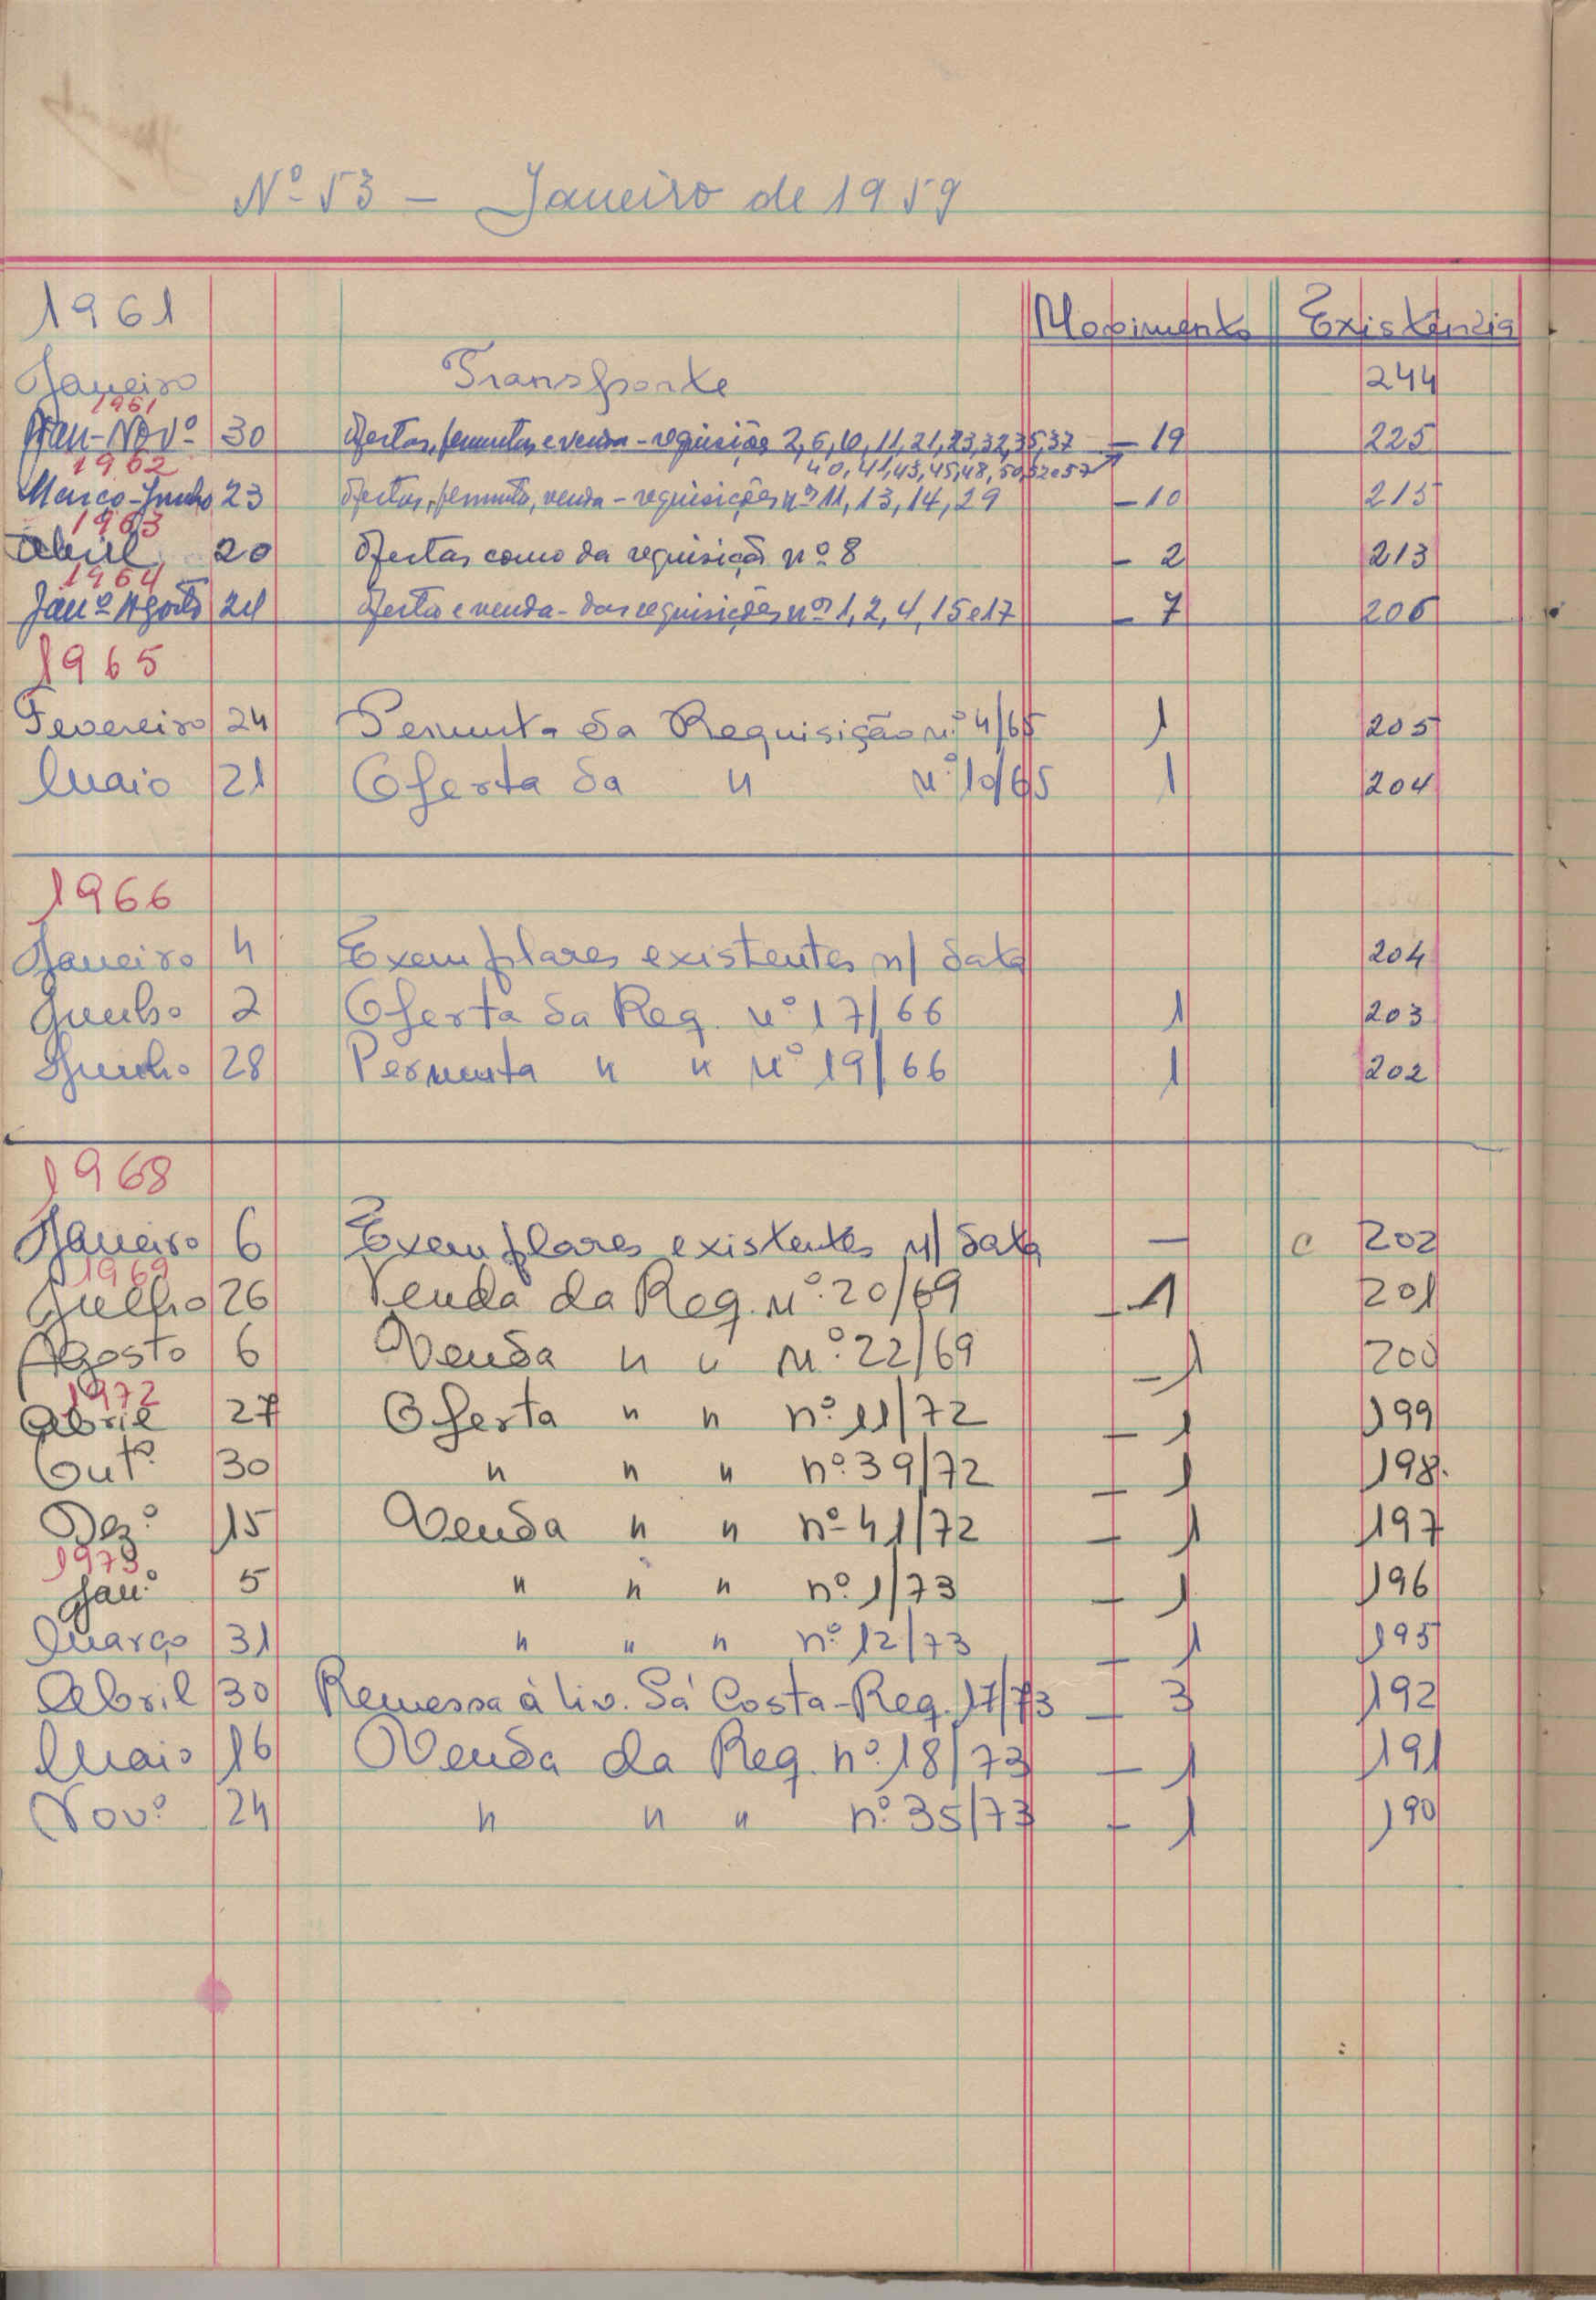 Nº 53 - Janeiro de 1959
1961 Movimento Existência
Janeiro Transporte 244
1961
Jan-Novº 30 Ofertas, permutas, e venda - requisições 2, 6, 10, 11, 21, 23, 32, 35, 37 - 19 225
40, 41, 43, 45, 48, 50, 52 e 57
1962
Março-Junho 23 Ofertas, permuta, venda - requisições nºs 11, 13, 14, 29 - 10 215
1963
Abril 20 Ofertas como da requisição nº 8 - 2 213
1964
Janº Agosto 24 Oferta e venda - das requisições nºs 1, 2, 4, 15 e 17 - 7 206
1965
Fevereiro 24 Permuta da Requisição nº 4/65 1 205
Maio 21 Oferta da " nº 10/65 1 204
1966
Janeiro 4 Exemplares existentes n/ data 204
Junho 2 Oferta da Req. nº 17/66 1 203
Junho 28 Permuta " " nº 19/66 1 202
1968
Janeiro 6 Exemplares existentes n/ data - c 202
1969
Julho 26 Venda da Req. nº 20/69 - 1 201
Agosto 6 Venda " " nº 22/69 - 1 200
1972
Abril 27 Oferta " " nº 11/72 - 1 199
Outº 30 " " " nº 39/72 - 1 198.
Dezº 15 Venda " " nº 41/72 - 1 197
1973
Janº 5 " " " nº 1/73 - 1 196
Março 31 " " " nº 12/73 - 1 195
Abril 30 Remessa à Liv. Sá Costa - Req. 17/73 - 3 192
Maio 16 Venda da Req. nº 18/73 - 1 191
Novº 24 " " " nº 35/73 - 1 190